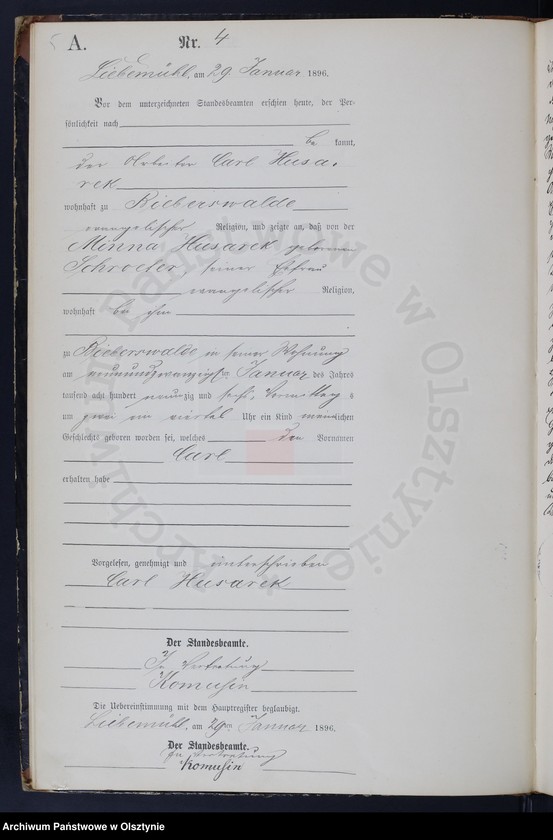 5
A.
Nr. 4
Liebemühl, am 29 Januar 1896.
Vor dem unterzeichneten Standesbeamten erschien heute, der Per-
sönlichkeit nach
be kannt,
der Arbeiter Carl Husa-
rek
wohnhaft zu Bieberswalde
evangelischer Religion, und zeigte an, daß von der
Minna Husarek geborenen
Schroeter, seiner Ehefrau
evangelischer Religion,
wohnhaft bei ihm
zu Bieberswalde in seiner Wohnung
am neunundzwanzigsten Januar des Jahres
tausend acht hundert neunzig und sechs, Vormittags
um zwei ein viertel Uhr ein Kind männlichen
Geschlechts geboren worden sei, welches den Vornamen
Carl
erhalten habe
Vorgelesen, genehmigt und unterschrieben
Carl Husarek
Der Standesbeamte.
In Vertretung
Komusin
Die Uebereinstimmung mit dem Hauptregister beglaubigt.
Liebemühl, am 29ten Januar 1896.
Der Standesbeamte.
In Vertretung
Komusin
Archiwum Państwowe w Olsztynie
Archiwum Państwowe w Olsztynie